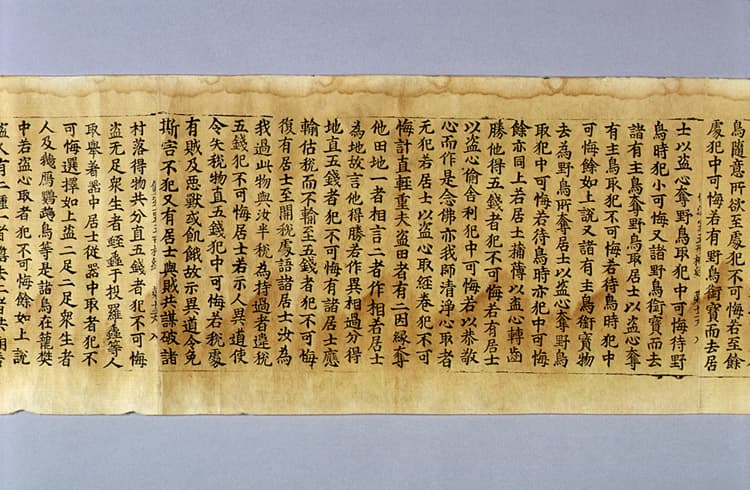 鳥隨意所欲至處犯不可悔若至餘
處犯中可悔若有野鳥銜寶而去居
士以盜心奪野鳥取犯中可悔待野
鳥時犯小可悔又諸野鳥銜寶而去
諸有主鳥奪野鳥取居士以盜心奪
有主鳥取犯不可悔若待鳥時犯中
可悔餘如上說又諸有主鳥銜寶物
去為野鳥所奪居士以盜心奪野鳥
取犯中可悔若待鳥時亦犯中可悔
餘亦同上若居士蒱博以盜心轉齒
勝他得五錢者犯不可悔若有居士
以盜心偷舍利犯中可悔若以恭敬
心而作是念佛亦我師清淨心取者
无犯若居士以盜心取經卷犯不可
悔計直輕重夫盜田者有二因緣奪
他田地一者相言二者作相若居士
為地故言他得勝若作異相過分得
地直五錢者犯不可悔有諸居士應
輸估稅而不輸至五錢者犯不可悔
復有居士至關稅處語諸居士汝為
我過此物與汝半稅為持過者違稅
五錢犯不可悔居士若示人異道使
令失稅物直五錢犯中可悔若稅處
有賊及惡獸或飢餓故示異道令免
撕害不犯又有居士與賊共謀破諸
村落得物共分直五錢者犯不可悔
盜无足眾生者蛭蟲于投羅蟲等人
取舉著器中居士從器中取者犯不
可悔選擇如上盜二足三足眾生者
人及鵝鴈鸚鵡鳥等是諸鳥在籠樊
中若盜心取者犯不可悔餘如上說
盜人有二種一者擔去二者共期